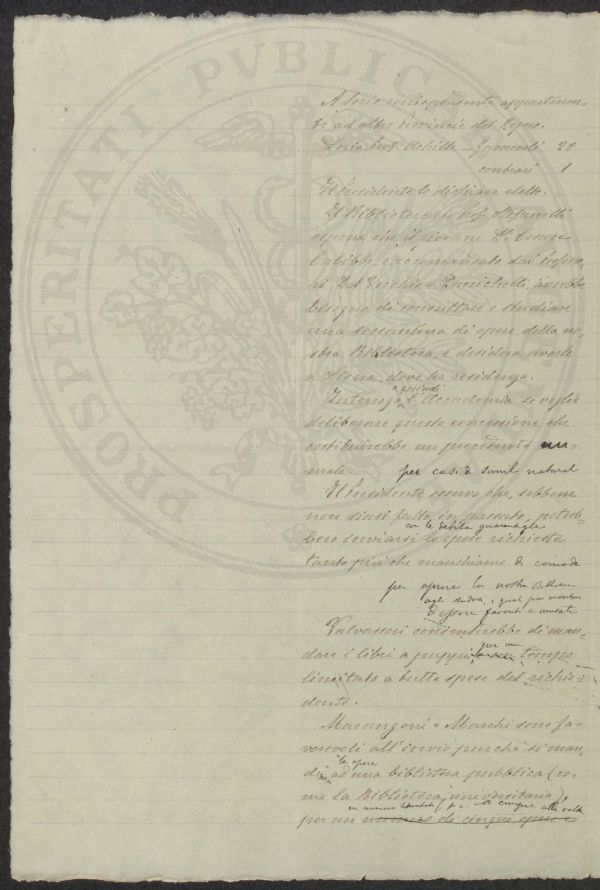 PROSPERITATI PVBLIC
A Socio corrispondente appartenen=
te ad altre Provincie del Regno.
Loria Prof. Achille – favorevoli 20
contrari 1
Il Presidente lo dichiara eletto.
Il Bibliotecario Prof. Stefanelli
espone che il giovane Dr. Cesare
raccomandato dai Profeso=
ri Del Vecchio e Zanichelli, avrebbe
bisogno di consultare e studiare
una sessantina di opere della no=
stra Biblioteca, e desidera averle
a Siena, dove ha residenza.
Interroga quindi l'Accademia se voglia
deliberare questa concessione che
costituirebbe un precedente
per casi di simil natura
Il Presidente osserva che, sebbene
non siasi fatto in passato, potreb=
con le debite guarentigie
bero inviarsi le opere richieste
tanto più che manchiamo di comodi
per aprire la nostra Biblioteca
agli studiosi, i quali pur meritano
d'essere favoriti e aiutati
Valvassori consentirebbe di man=
per un
dare i libri a gruppi tempo
limitato a tutte spese del richie=
dente.
Marangoni e Marchi sono fa=
vorevoli all'invio purchè si man=
le opere
di ad una biblioteca pubblica (co=
me la Biblioteca universitaria),
in numero limitato, p. e. da cinque alla volta
per un numero di cinque opere e